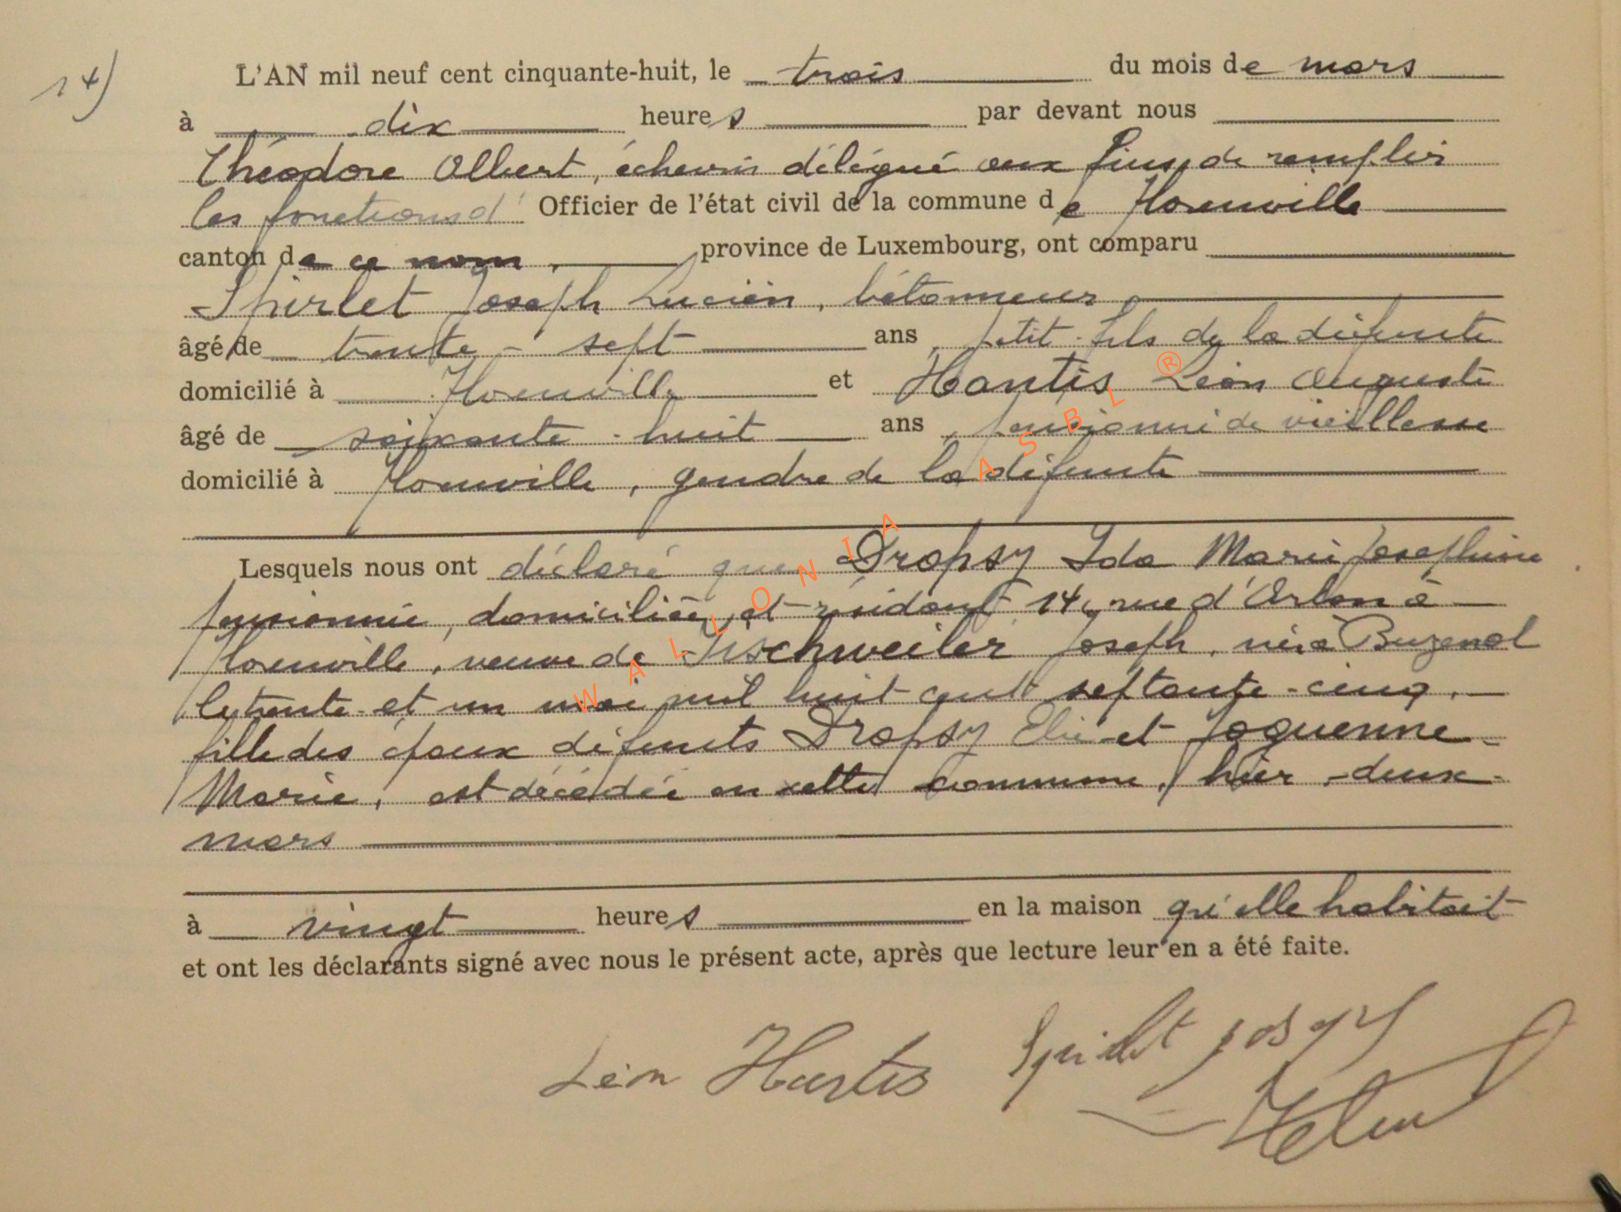 14)
L'AN mil neuf cent cinquante-huit, le trois du mois de mars
à dix heures par devant nous
Théodore Albert, échevin délégué aux fins de remplir
les fonctions d' Officier de l'état civil de la commune de Florenville
canton de ce nom, province de Luxembourg, ont comparu
Spirlet Joseph Lucien, bétonneur
âgé de trente-sept ans, petit-fils de la défunte
domicilié à Florenville et Hantis Léon Auguste
âgé de soixante-huit ans, pensionné de vieillesse
domicilié à Florenville, gendre de la défunte
Lesquels nous ont déclaré que Dropsy Ida Marie Joséphine
pensionnée, domiciliée et résidant 14, rue d'Arlon à
Florenville, veuve de Fischweiler Joseph, née à Buzenol
le trente et un mai mil huit cent septante-cinq,
fille des époux défunts Dropsy Elie et Joguenne
Marie, est décédée en cette commune, hier deux
mars
à vingt heures en la maison qu'elle habitait
et ont les déclarants signé avec nous le présent acte, après que lecture leur en a été faite.
Léon Hantis Spirlet
WALLONIA ASBL ®